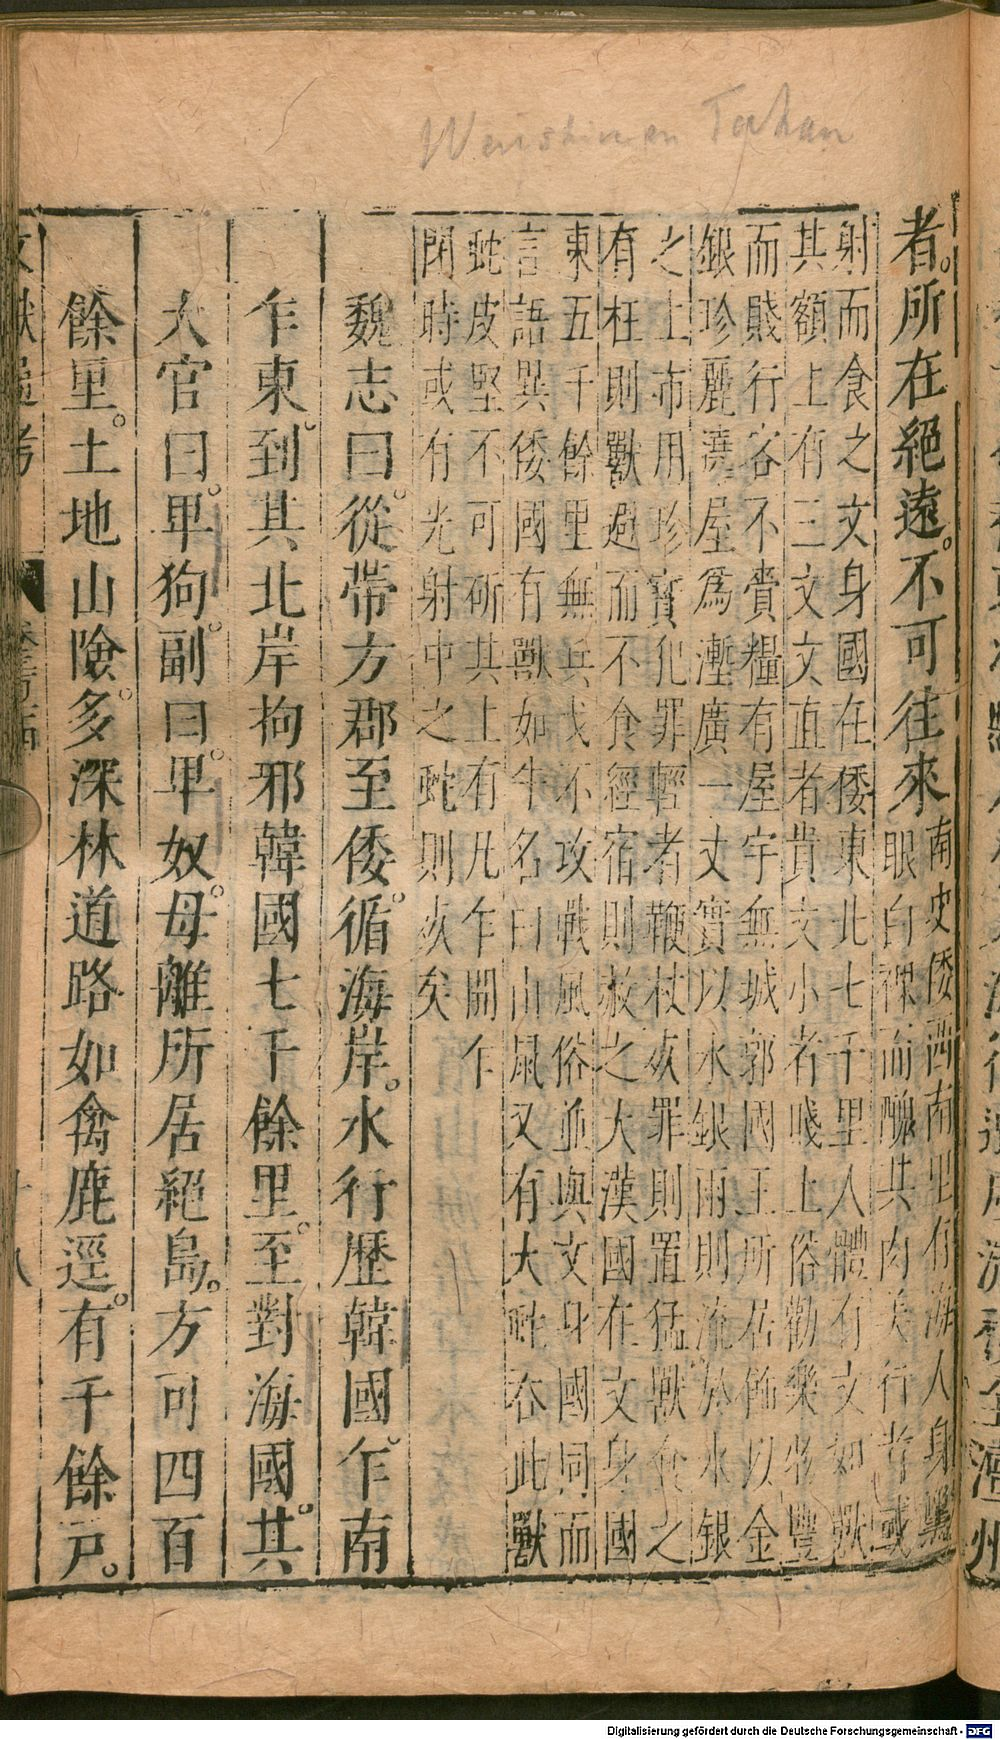 Wenshin en Tahan
者。所在絕遠。不可往來
南史倭西南里有海人身黑
眼白裸而醜其肉美行者或
射而食之文身國在倭東北七千里人體有文如獸
其額上有三文文直者貴文小者賤土俗勸樂物豐
而賤行客不賚糧有屋宇無城郭國王所居飾以金
銀珍麗遶屋爲塹廣一丈實以水銀雨則流於水銀
之上市用珍寶犯罪輕者鞭杖死罪則置猛獸食之
有枉則獸避而不食經宿則赦之大漢國在文身國
東五千餘里無兵戈不攻戰風俗並與文身國同而
言語異倭國有獸如牛名曰山鼠又有大蛇吞此獸
蛇皮堅不可斫其上有孔乍開乍
閉時或有光射中之蛇則死矣
魏志曰。從帶方郡至倭。循海岸。水行歷韓國。乍南
乍東。到其北岸拘邪韓國七千餘里。至對海國。其
大官曰。卑狗。副曰。卑奴。母離所居絕島。方可四百
餘里。土地山險。多深林道路如禽鹿逕。有千餘戸。
文獻通考 卷三百二十四 十八
Digitalisierung gefördert durch die Deutsche Forschungsgemeinschaft - DFG